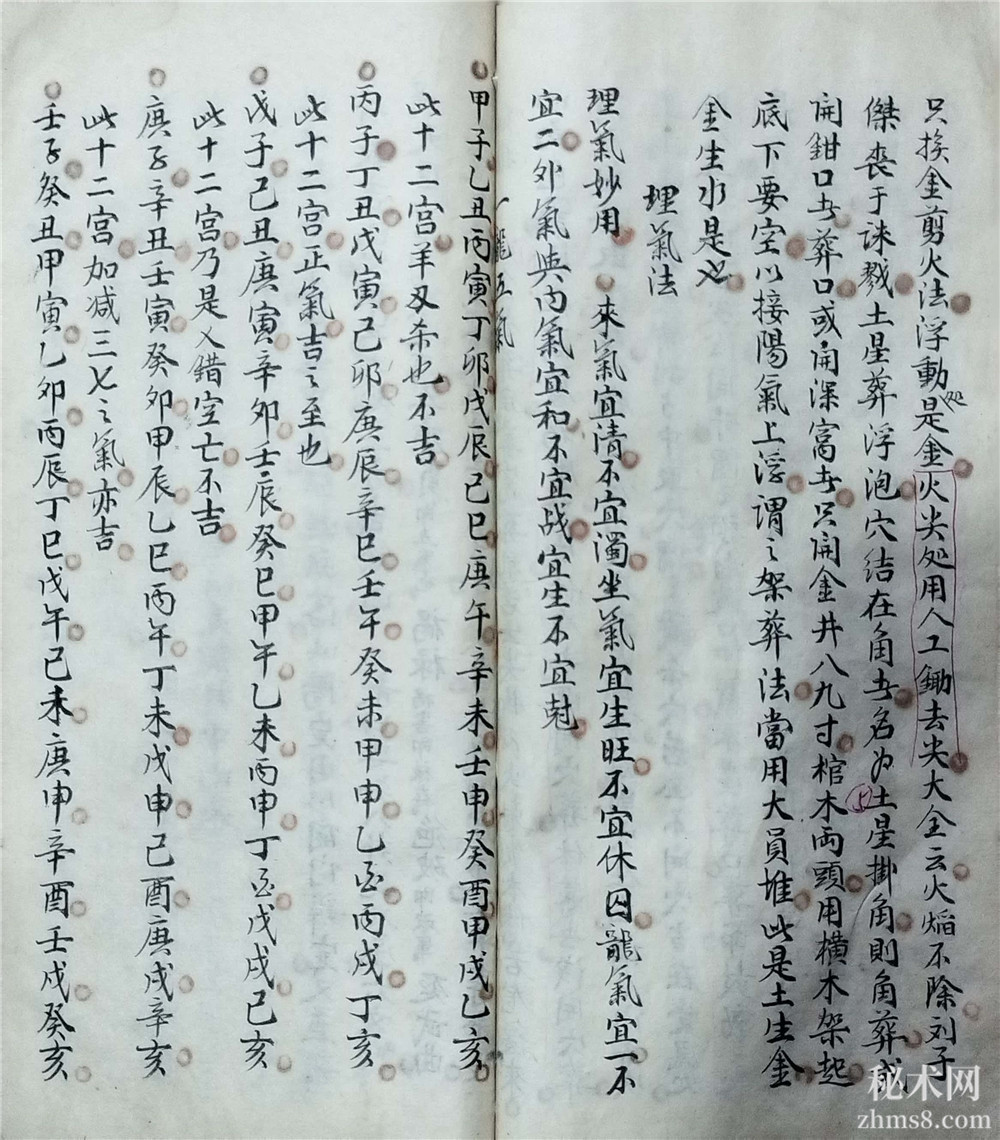 只挨金剪火法浮動处是金火尖处用人工鋤去尖大全云火焰不除刘子
傑喪于誅戮土星葬浮泡穴結在角者名为土星掛角則角葬或
開鉗口者葬口或開深窩者只開金井八九寸棺木両頭用横木架起
底下要空以接陽氣上浮谓之架葬法當用大員堆此是土生金
金生水是也
理氣法
理氣妙用 來氣宜清不宜濁坐氣宜生旺不宜休囚龍氣宜一不
宜二外氣與内氣宜和不宜战宜生不宜尅
一龍五氣
甲子乙丑丙寅丁卯戊辰己巳庚午辛未壬申癸酉甲戌乙亥
此十二宫羊刃杀也不吉
丙子丁丑戊寅己卯庚辰辛巳壬午癸未甲申乙酉丙戌丁亥
此十二宫正氣吉之至也
戊子己丑庚寅辛卯壬辰癸巳甲午乙未丙申丁酉戊戌己亥
此十二宫乃是乂錯空亡不吉
庚子辛丑壬寅癸卯甲辰乙巳丙午丁未戊申己酉庚戌辛亥
此十二宫加减三七之氣亦吉
壬子癸丑甲寅乙卯丙辰丁巳戊午己未庚申辛酉壬戌癸亥
秘术网
zhms8.com